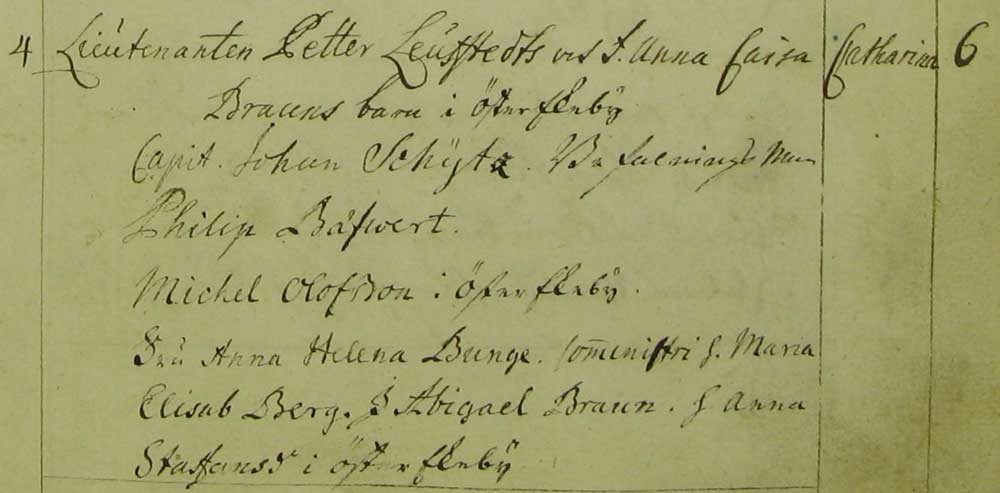 4 Lieutenanten Petter Leufstedts och f. Anna Caisa Catharina 6
Brauns barn i Österskeby
Capit. Johan Schÿtz. Befalnings Man
Philip Bäfwert.
Michel Olofsson i Österskeby.
Fru Anna Helena Bunge. Comministri h. Maria
Elisab Berg. J Abigael Braun. h Anna
Staffansd i Österskeby